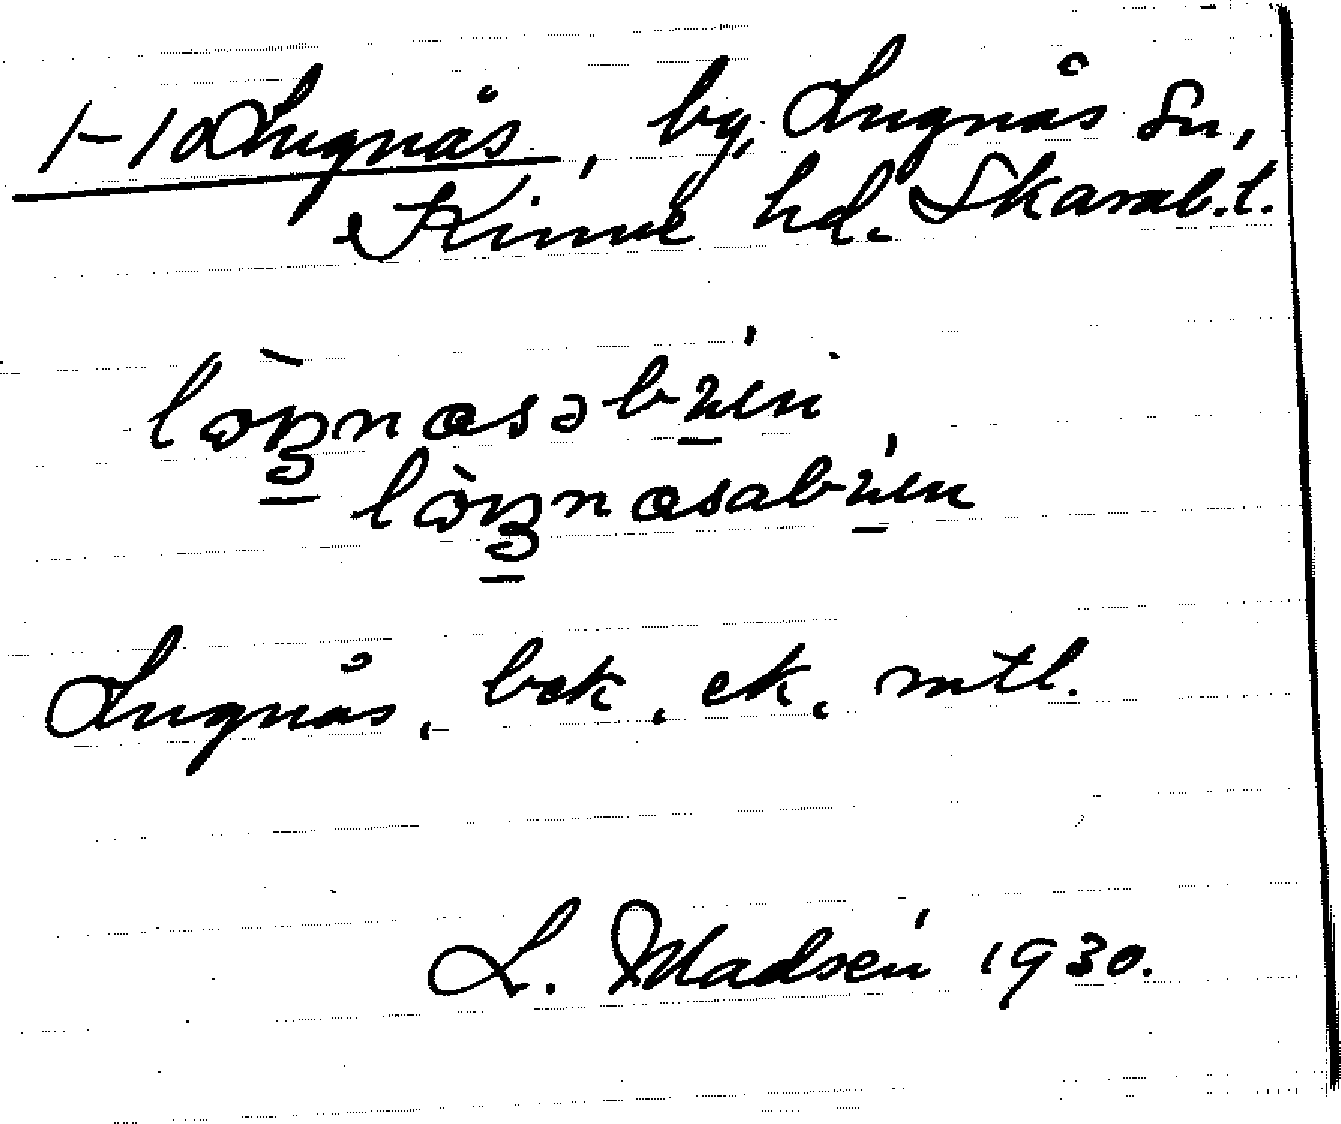 1-10 Lugnås, by, Lugnås sn,
Kinne hd. Skarab. l.
Lugnås, bek, ek, mtl.
L. Madsén 1930.